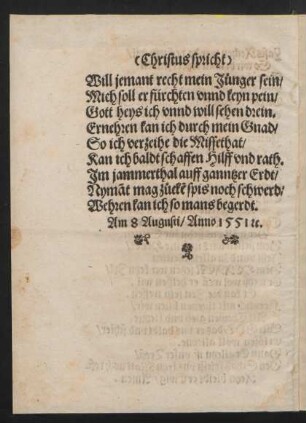 (Christus spricht)
Will jemant recht mein Jünger sein/
Mich soll er fürchten vnnd keyn pein/
Gott heys ich vnnd will sehen drein.
Ernehren kan ich durch mein Gnad/
So ich verzeihe die Missethat/
Kan ich baldt schaffen Hilff vnd rath.
Im jammerthal auff ganntzer Erdt/
Nymāt mag zückē spis noch schwerd/
Wehren kan ich so mans begerdt.
Am 8 Augusti/ Anno 1551 ꝛc.